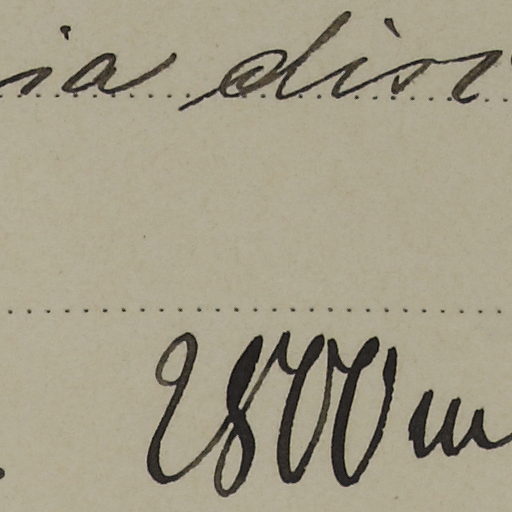 ia disc
2800 m